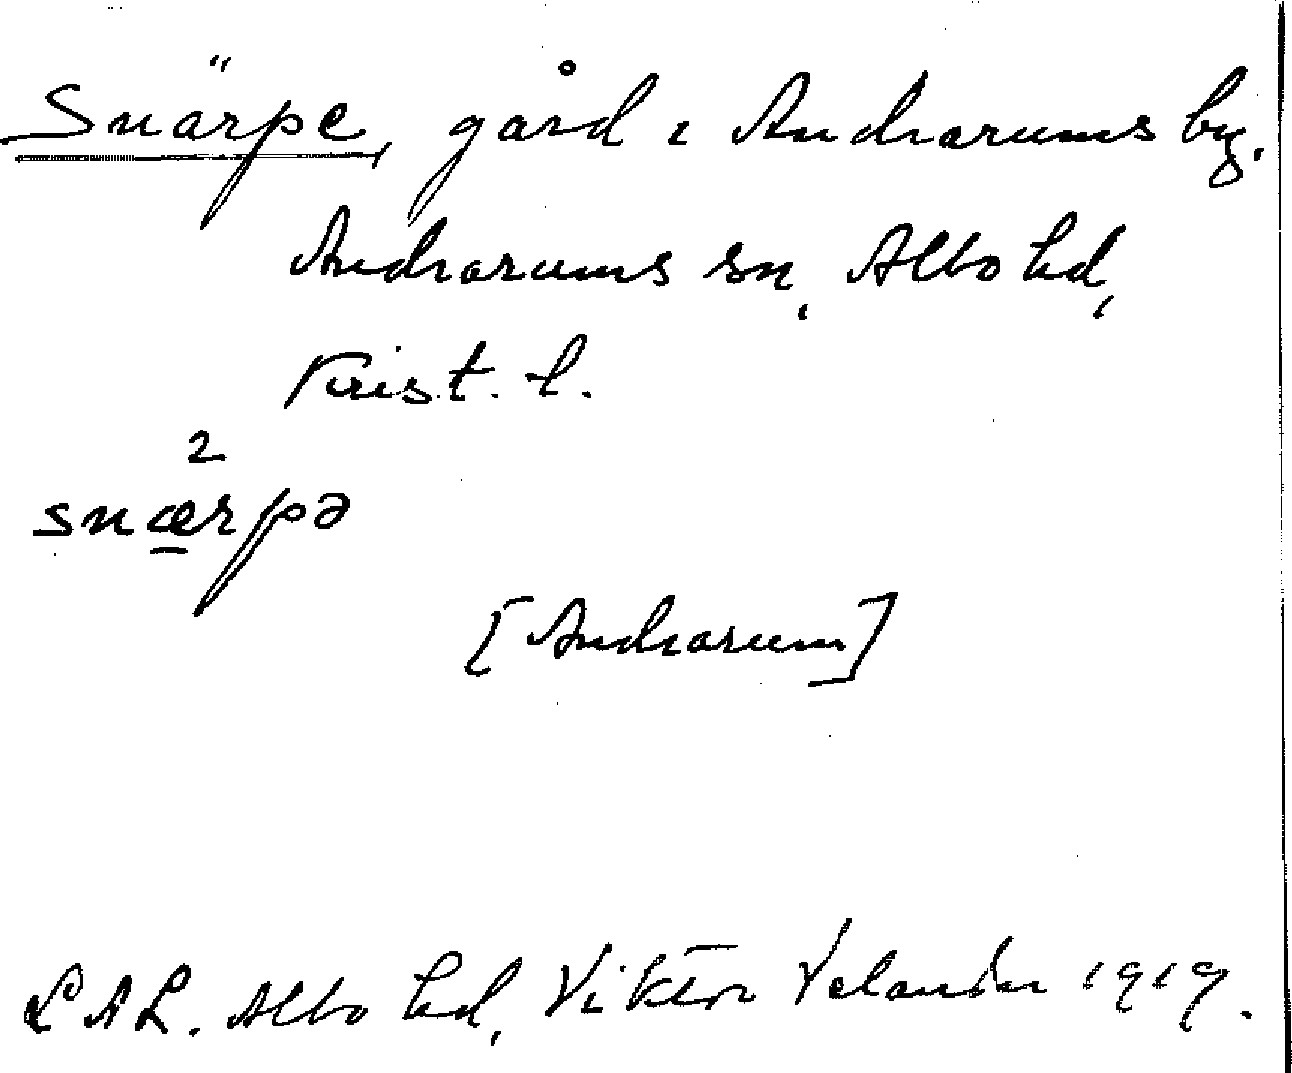 Snärpe, gård i Andrarums by.
Andrarums sn, Albo hd,
Krist. l.
2
snærpə
[Andrarum]
LAL. Albo hd, Viktor 1919.